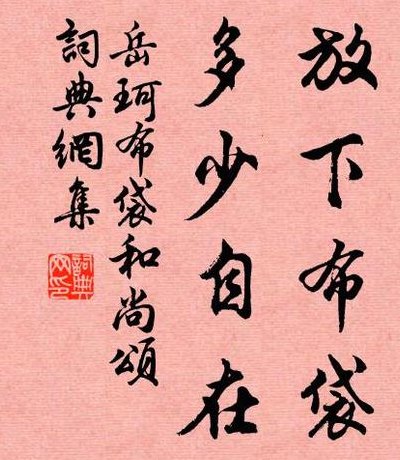 放下布袋
多少自在
岳珂布袋和尚頌
詞典網集
詞典
网印